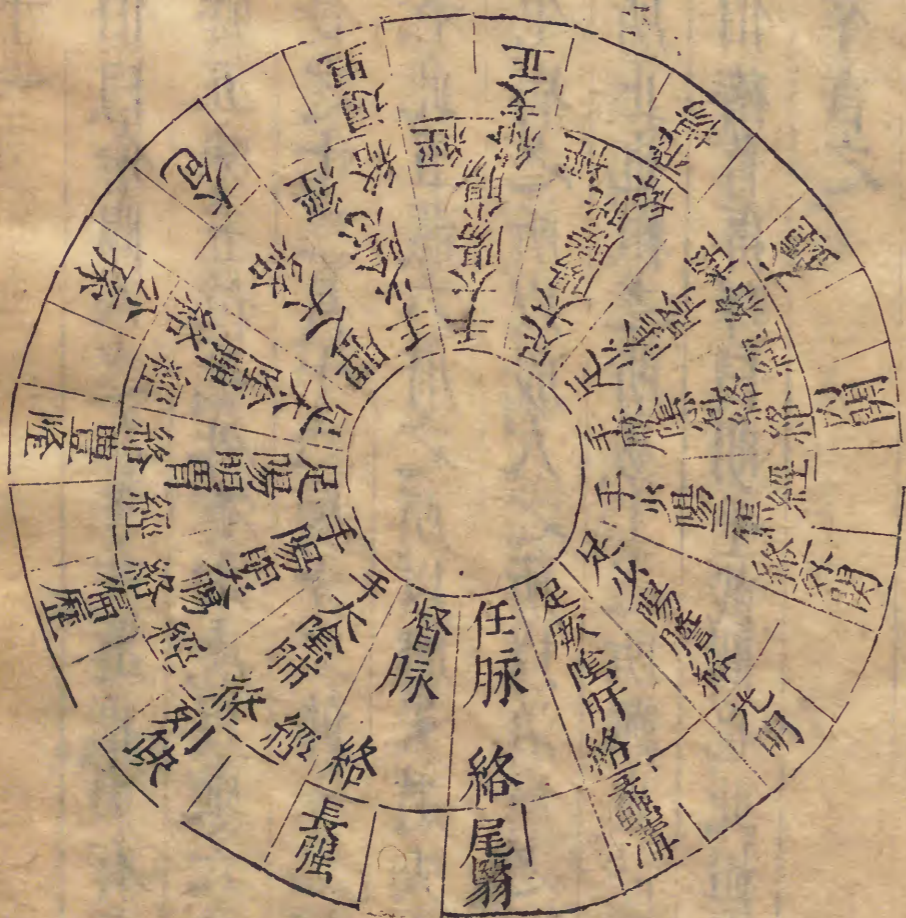 手太陰肺經絡
列缺
手陽明大腸經絡
偏歷
足陽明胃經絡
豐隆
足太陰脾經絡
公孫
脾之大絡
大包
手少陰心經絡
通里
手太陽小腸經絡
支正
足太陽膀胱經絡
飛揚
足少陰腎經絡
大鍾
手厥陰心包絡經絡
內關
手少陽三焦經絡
外關
足少陽膽絡
光明
足厥陰肝絡
蠡溝
任脉絡
尾翳
督脉絡
長强